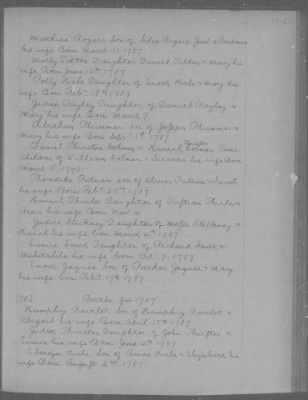 Matthias Rogers Son of Silas Rogers Junr & Prudence
his wife Born March 31 1787
Molly Titton Daughter Daniel Titton & Mary his
wife Born June 15th 1787
Polly Hale Daughter of Enoch Hale & Mary his
wife Born Feby 18th 1787
Judith Bayley Daughter of Daniel Bayley &
Mary his wife Born March 7
Abraham Plummer Son of Joseph Plummer &
Mary his wife Born Sept 18th 1787
Daniel Thurston Colman & Hannah Colman Twin
children of William Colman & Susanna his wife Born
March 5 1787
Theodate Putnam Son of Oliver Putnam & Sarah
his wife Born Feby 23rd 1787
Hannah Thurla Daughter of Thurla &
Anna his wife Born Nov 4
Judith Stickney Daughter of Moses Stickney &
Sarah his wife born March 4th 1787
Eunice Daughter of Richard &
Mehetable his wife born Octr 7. 1787
Enoch Jaques Son of Parker Jaques & Mary
his wife born Feby 19th 1787
[78] Births for 1787
Humphry Bartlet Son of Humphry Bartlet &
Abigail his wife Born April 15th 1787
Judith Thurston Daughter of John Thurston &
Eunice his wife Born June 4th 1787
Ebenezer Hale Son of Amos Hale & Elizabeth his
wife Born August 2nd 1787